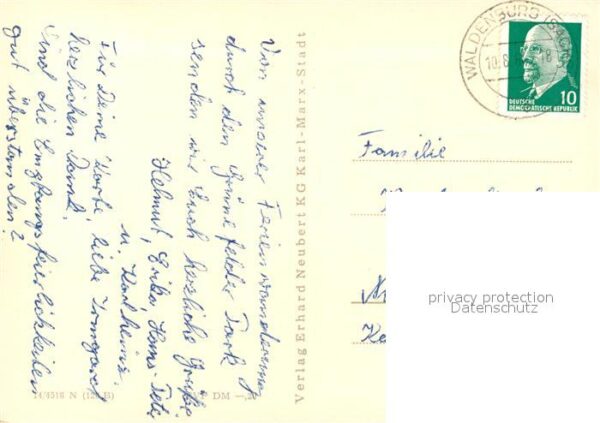 Von unserer Ferienwanderung
durch den Grünefelder Park
senden wir Euch herzliche Grüße
Helmut, Erika, Hans-Peter
u. Karlheinz.
Für Deine Karte, liebe Irmgard
herzlichen Dank.
Sind die Empfangsfeierlichkeiten
gut überstanden?
14/4518 N
DM
Verlag Erhard Neubert KG Karl-Marx-Stadt
WALDENBURG (SACHS)
DEUTSCHE
DEMOKRATISCHE REPUBLIK
10
Familie
privacy protection
Datenschutz